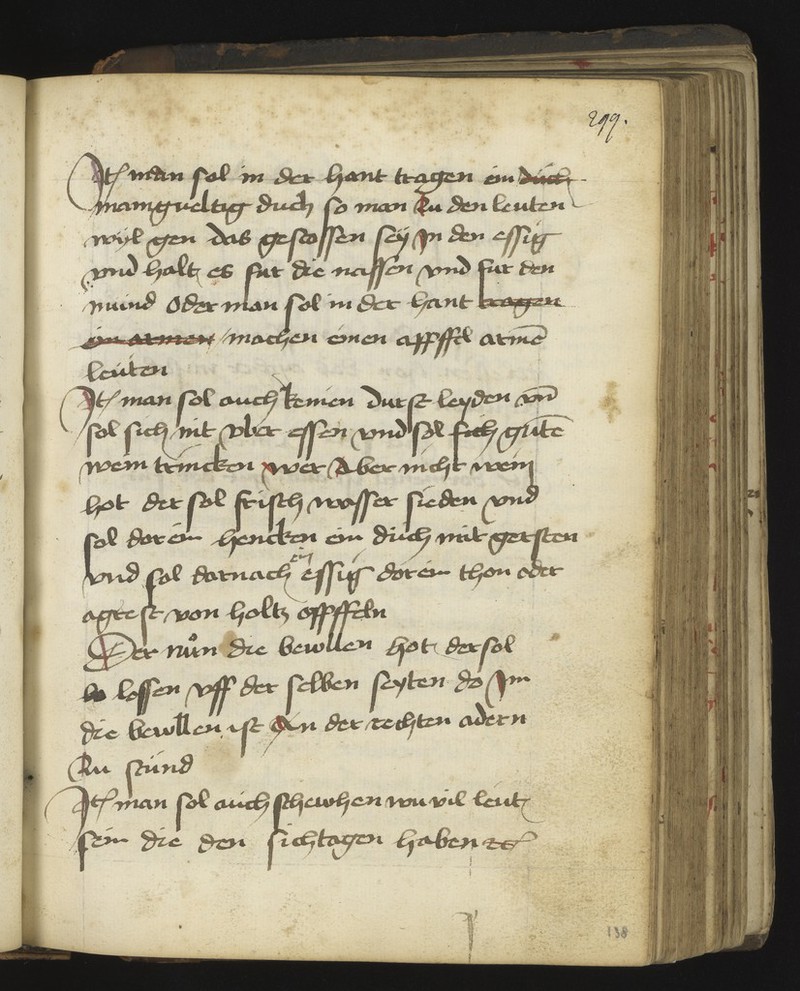 299.
It[em] man sol in der hant tragen ein duch
manigueltig duch so man Zu den leuten
wyl gen das gestossen sey Jn den essig
vnd halt es fur die nassen vnd fur den
mund Oder man sol in der hant tragen
ein armen machen einen appffel armē
leuten
It[em] man sol auch keinen durst leyden vn̄
sol sich nit vber essen vnd sol sich gutē
wein trincken wer Aber nicht wein
hot der sol frisch wasser sieden vnd
sol dorein hencken ein duch mit gersten
vnd sol darnach ein essig dorein thon oder
agrest von holtz offpffeln
Der nůn die bewllen hot der sol
lossen vff der selben seyten do Jm
die bewllen ist An der rechten adern
Zu stund
It[em] man sol auch schewhen wu vil leut
sein die den sichtagen haben etc
138